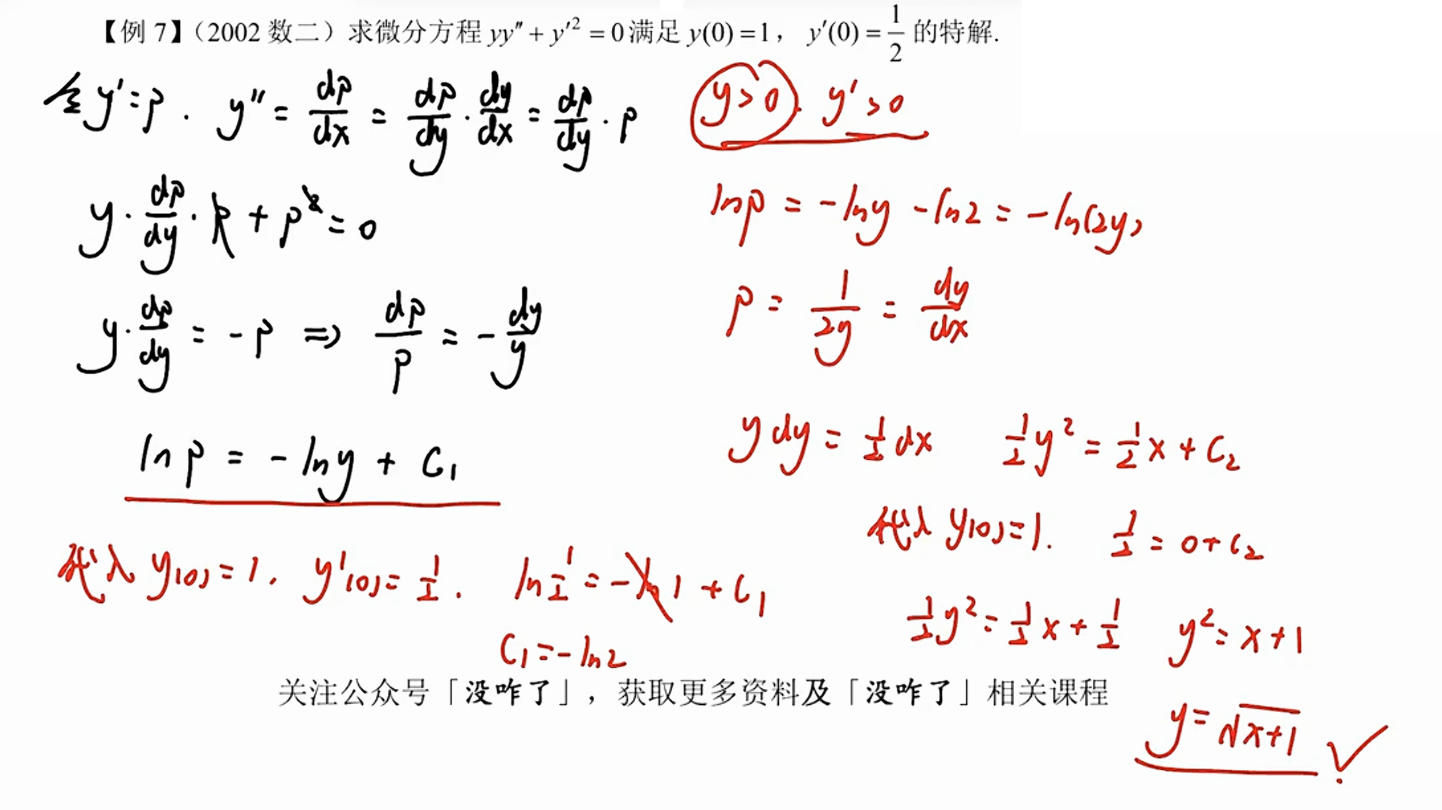 【例 7】（2002 数二）求微分方程 yy″ + y′² = 0 满足 y(0) = 1， y′(0) = 1/2 的特解.
令 y' = p . y'' = dp/dx = dp/dy · dy/dx = dp/dy · p
y · dp/dy · p + p² = 0
y · dp/dy = -p ⇒ dp/p = - dy/y
ln p = - ln y + C₁
代入 y(0) = 1 , y'(0) = 1/2 . ln 1/2 = - ln 1 + C₁
C₁ = - ln2
y > 0 . y' > 0
ln p = - ln y - ln 2 = - ln(2y)
p = 1/2y = dy/dx
y dy = 1/2 dx 1/2 y² = 1/2 x + C₂
代入 y(0) = 1. 1/2 = 0 + C₂
1/2 y² = 1/2 x + 1/2 y² = x + 1
y = √x+1 ✓
关注公众号「没咋了」，获取更多资料及「没咋了」相关课程